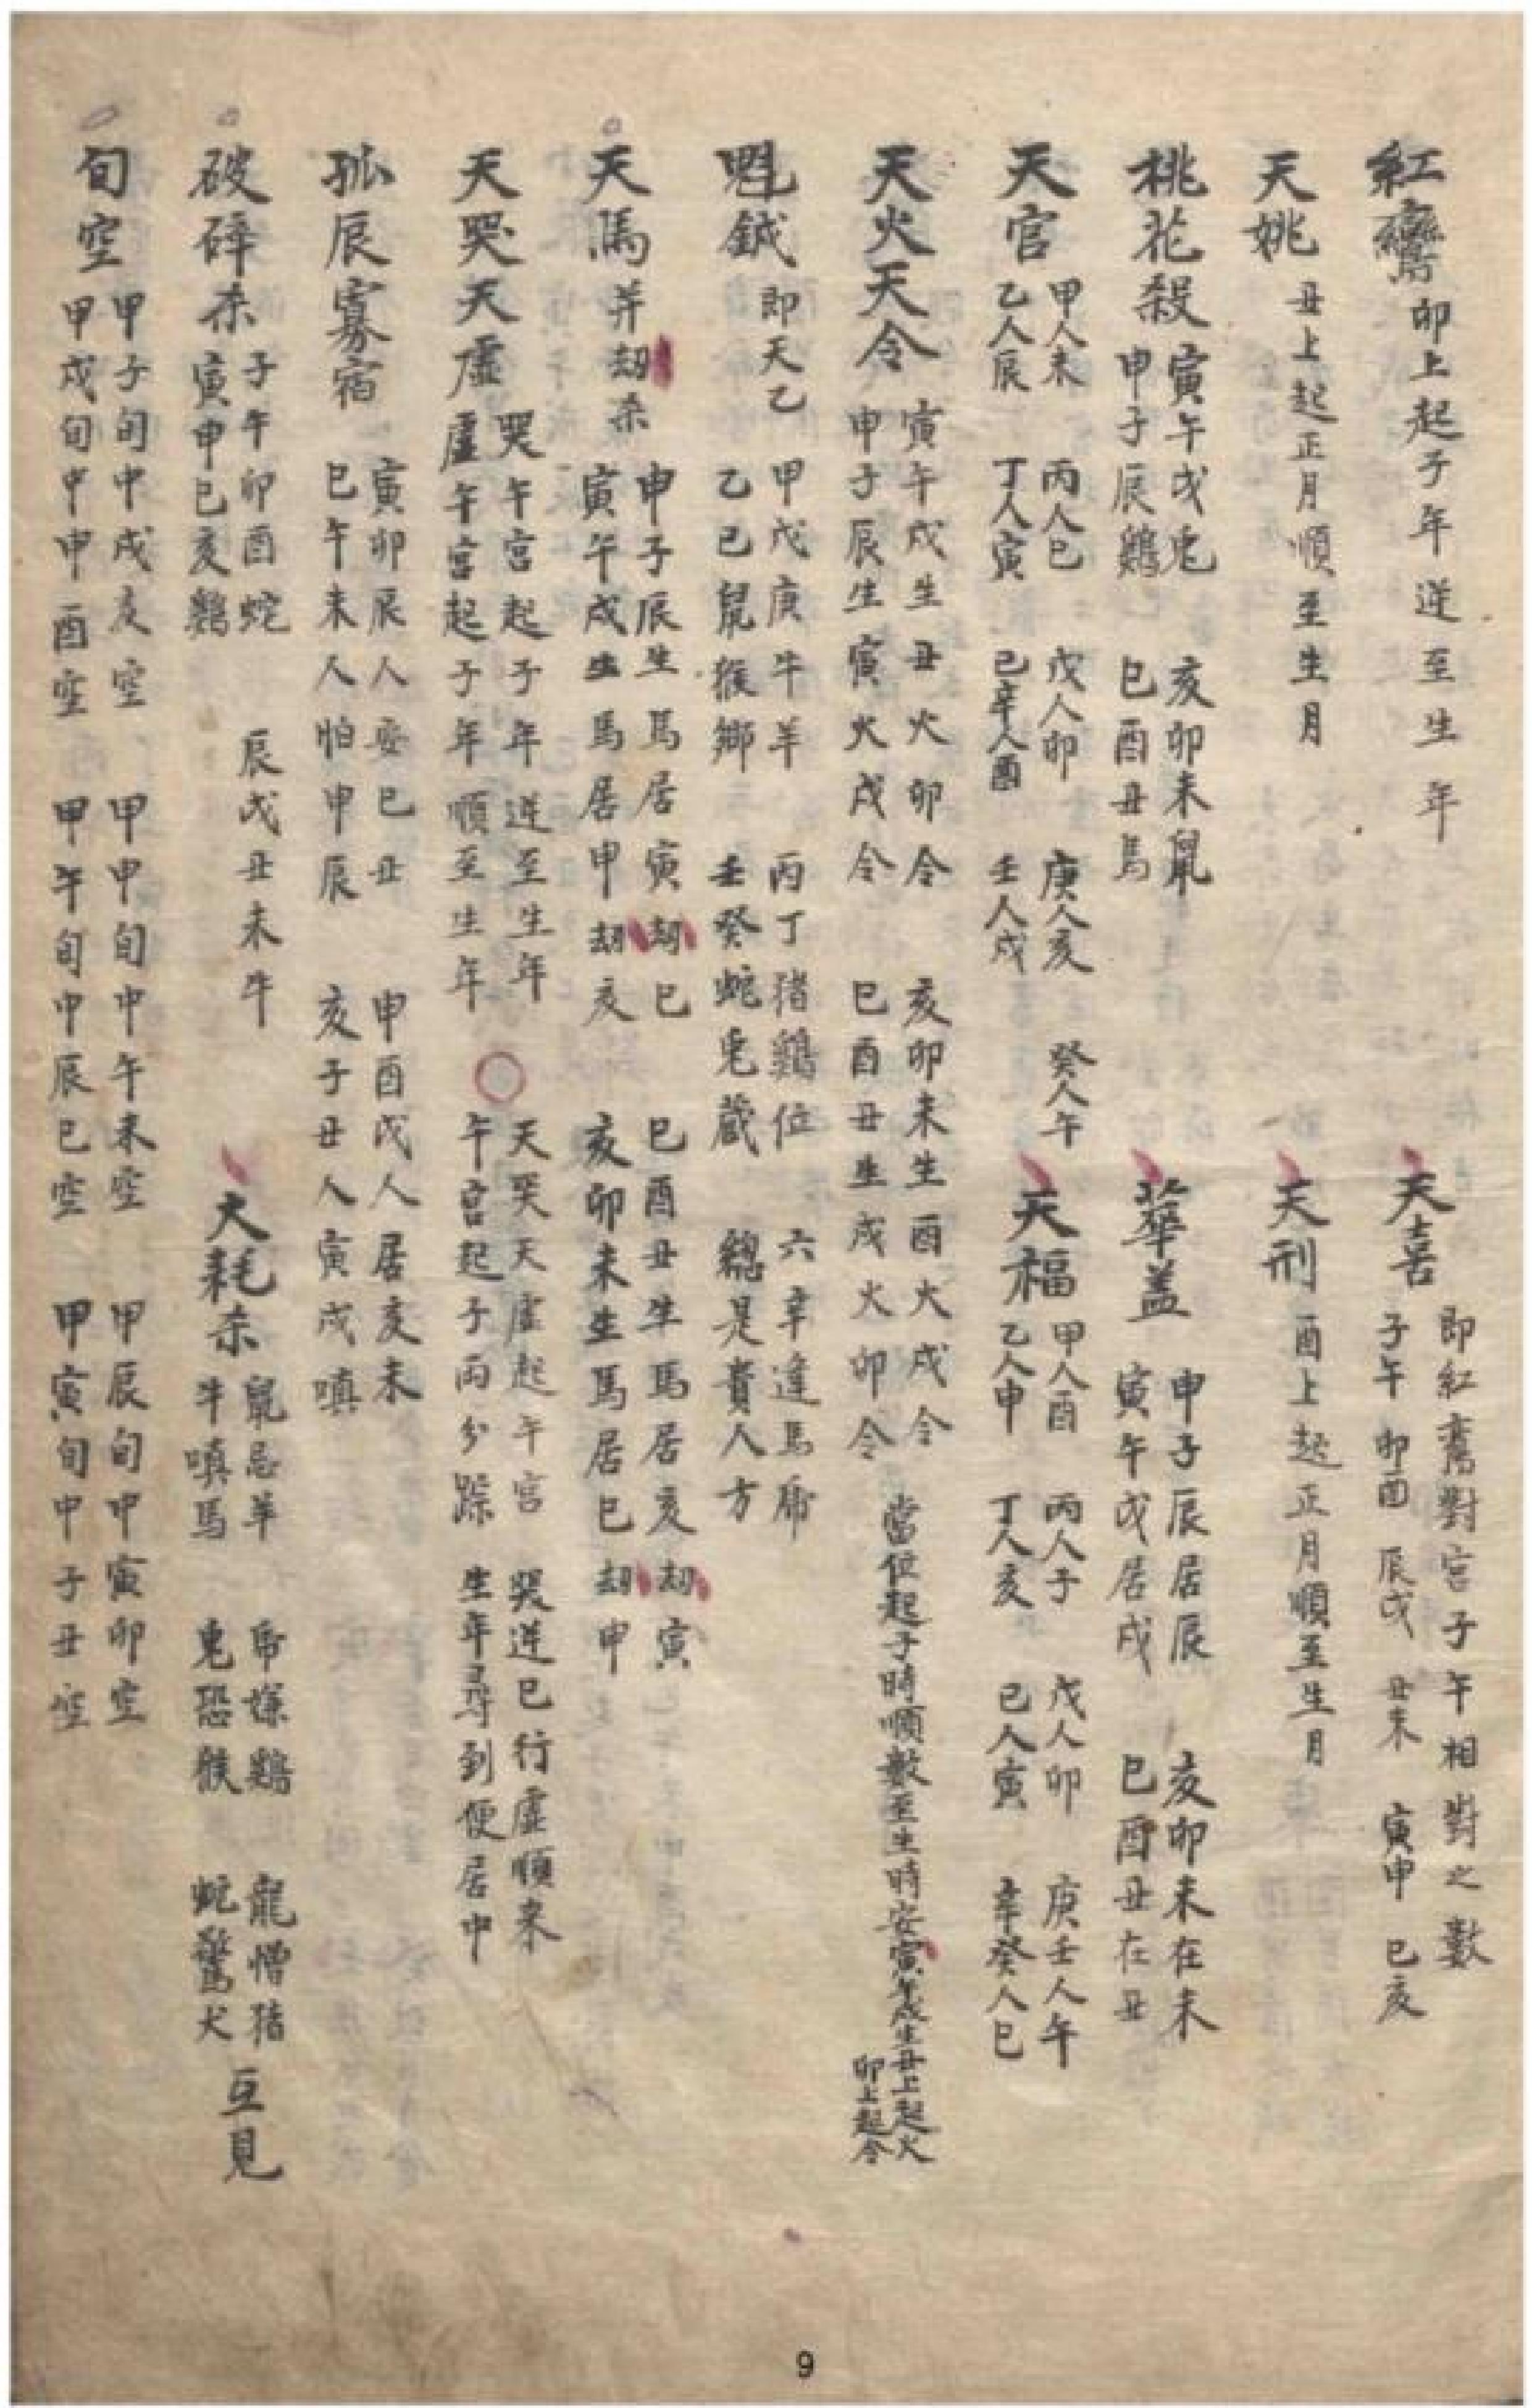 紅鸞 卯上起子年逆至生年
天喜 即紅鸞對宮子午相對之數
子午 卯酉 辰戌 丑未 寅申 巳亥
天姚 丑上起正月順至生月
天刑 酉上起正月順至生月
桃花殺 寅午戌兔 亥卯未鼠
申子辰鷄 巳酉丑馬
華盖 申子辰居辰 亥卯未在未
寅午戌居戌 巳酉丑在丑
天官 甲人未 丙人巳 戊人卯 庚人亥 癸人午
乙人辰 丁人寅 己辛人酉 壬人戌
天福 甲人酉 丙人子 戊人卯 庚壬人午
乙人申 丁人亥 己人寅 辛癸人巳
天火天令 寅午戌生丑火卯令 亥卯未生酉火戌令
申子辰生寅火戌令 巳酉丑生戌火卯令
當位起子時順數至生時安寅午戌生丑上起火
卯上起令
魁鉞 即天乙 甲戊庚牛羊 丙丁猪鷄位 六辛逢馬席
乙己鼠猴鄉 壬癸蛇兔藏 總是貴人方
天馬并劫杀 申子辰生馬居寅劫巳 巳酉丑生馬居亥劫寅
寅午戌生馬居申劫亥 亥卯未生馬居巳劫申
天哭天虛 哭午宮起子年逆至生年
虛午宮起子年順至生年
天哭天虛起午宮 哭逆巳行虛順来
午宮起子兩分踪 生年尋到便居中
孤辰寡宿 寅卯辰人安巳丑 申酉戌人居亥未
巳午未人怕申辰 亥子丑人寅戌嗔
破碎杀 子午卯酉蛇 辰戌丑未牛
寅申巳亥鷄
大耗杀 鼠忌羊 帍嫌鷄 龍憎猪
牛嗔馬 兔恐猴 蛇驚犬 互見
旬空 甲子旬中戌亥空 甲申旬中午未空 甲辰旬中寅卯空
甲戌旬中申酉空 甲午旬中辰巳空 甲寅旬中子丑空
9